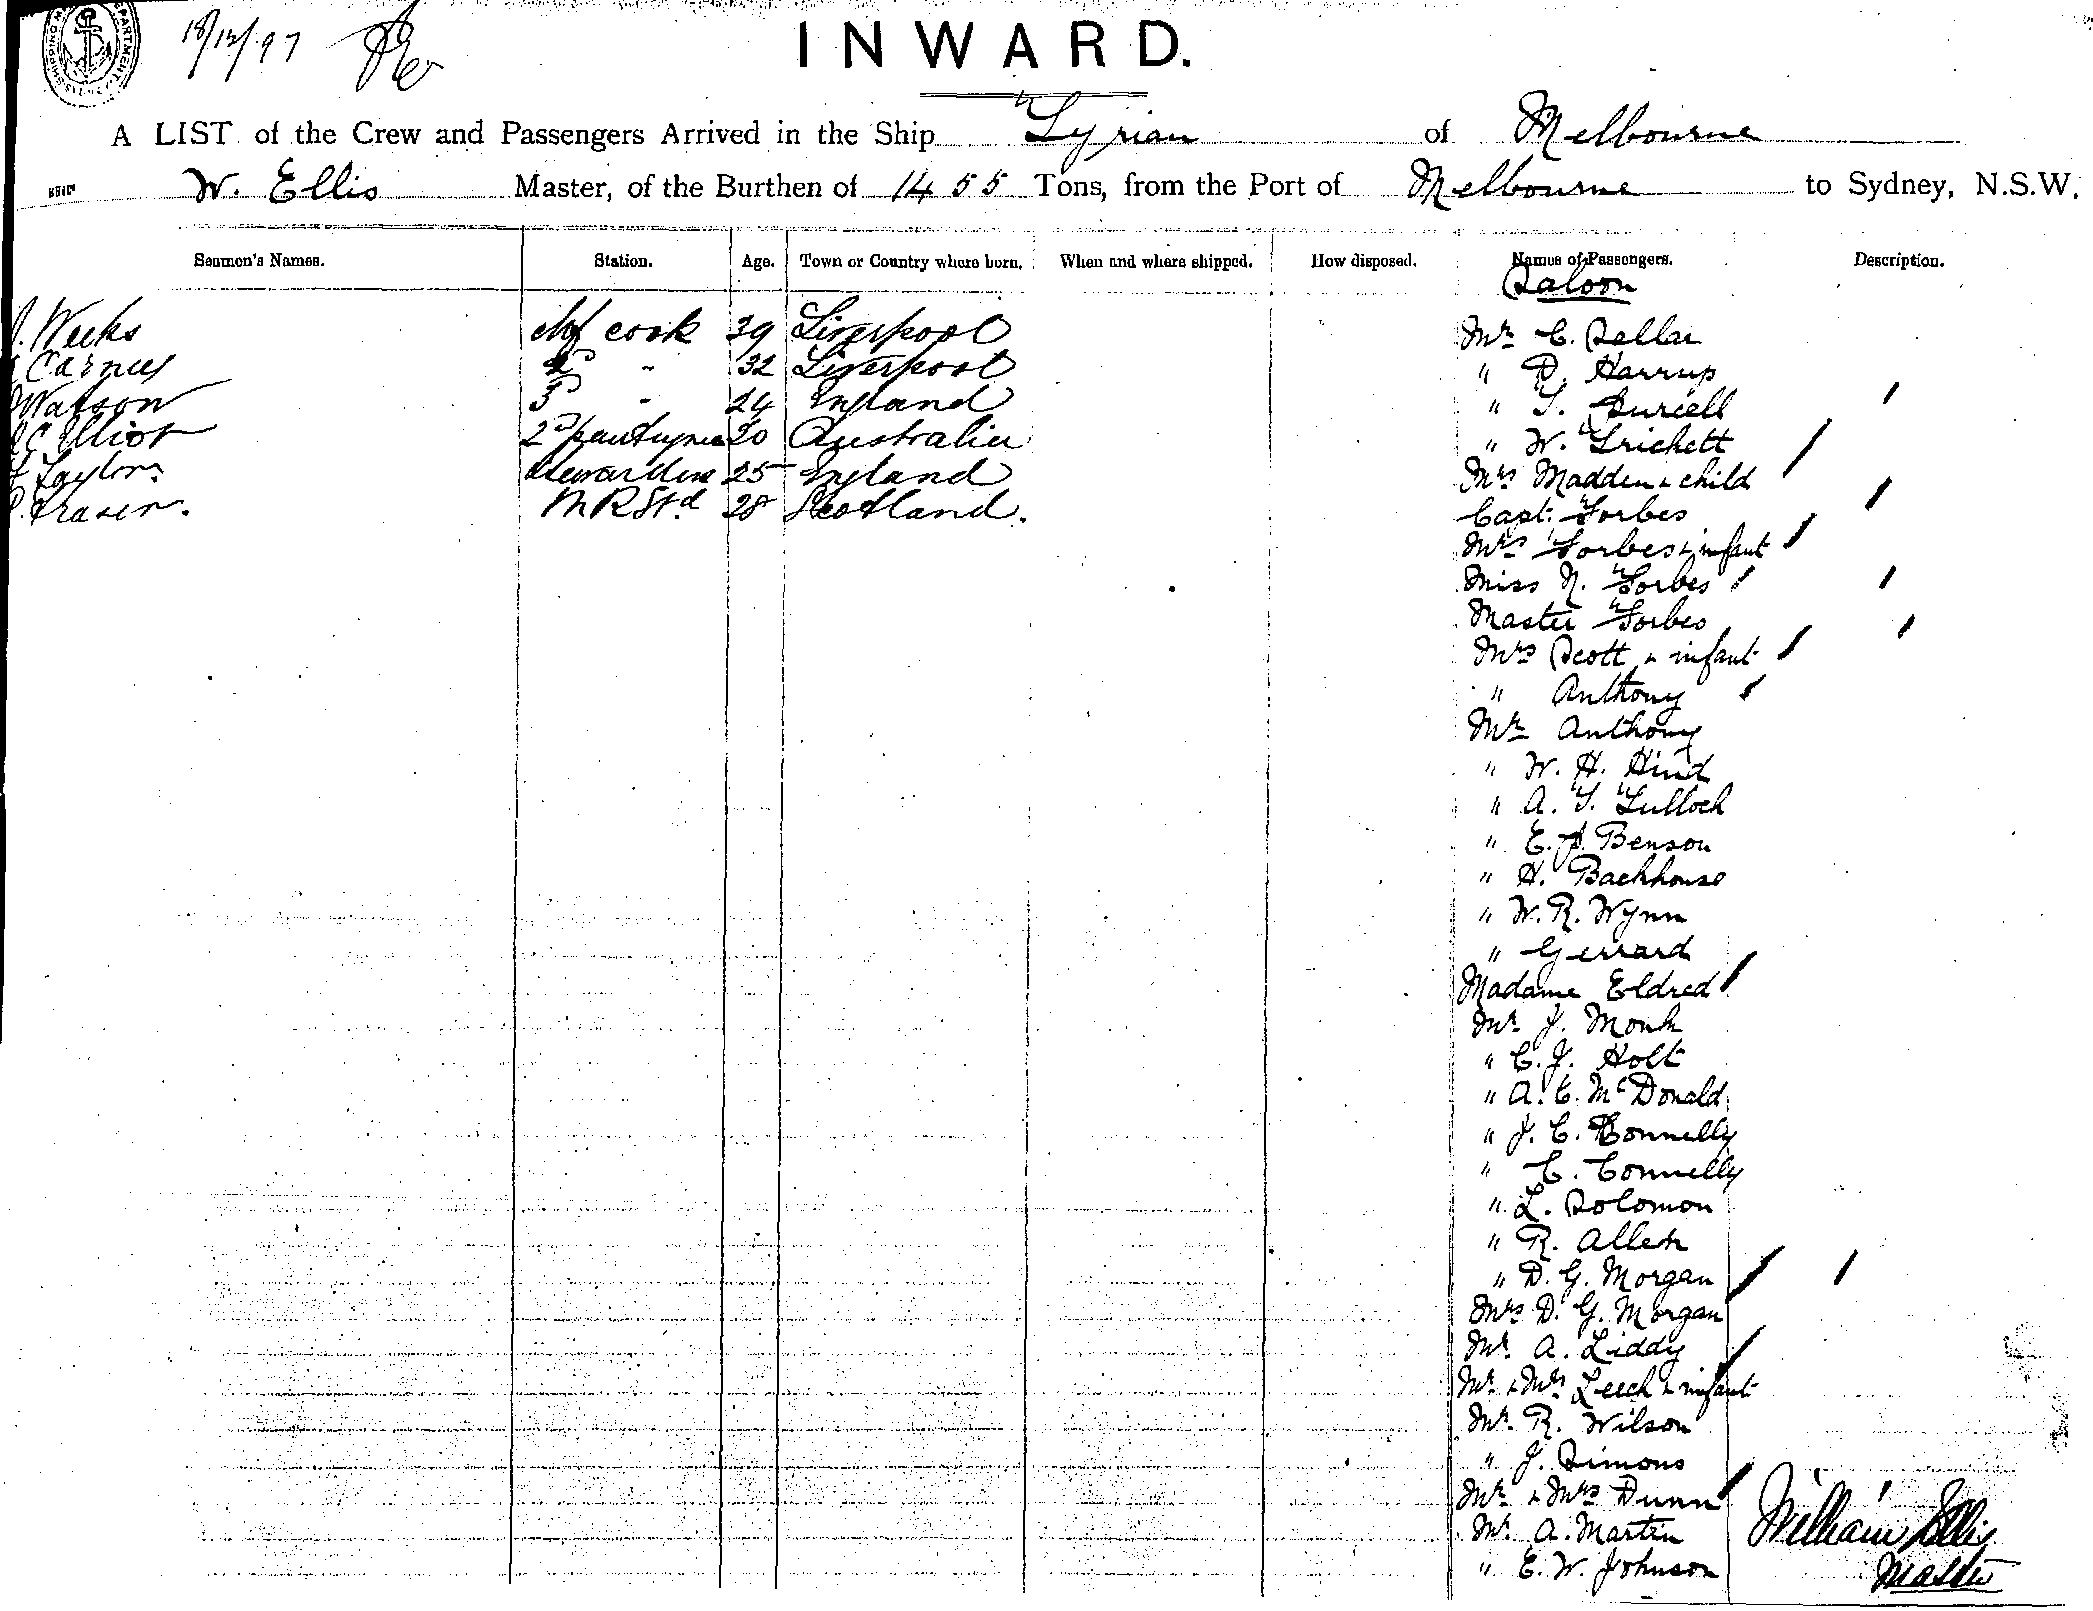 18/12/97
INWARD.
A LIST of the Crew and Passengers Arrived in the Ship Tyrian of Melbourne
W. Ellis Master, of the Burthen of 1455 Tons, from the Port of Melbourne to Sydney, N.S.W.
Seamen's Names. Station. Age. Town or Country where born. When and where shipped. How disposed. Names of Passengers. Description.
Saloon
Weeks chf cook 39 Liverpool Mr C. Sellar
Carney 2d " 32 Liverpool " D. Harrup
Watson 3d " 24 England " T. Purcell
Elliot 2d pantryman 20 Australia " W. Trickett
Taylor 25 England Mrs Madden & child
Fraser. M R Std 28 Scotland. Capt. Forbes
Mrs Forbes & infant
Miss N. Forbes
Master Forbes
Mrs Scott & infant
" Anthony
Mr Anthony
" W. H. Hind
" A. T. Tulloch
" E. J. Benson
" H. Backhouse
" W. R. Wynn
" Gerrard
Madame Eldred
Mr J. Monk
" C. J. Holt
" A. C. McDonald
" J. C. Connelly
" C. Connelly
" L. Solomon
" R. Allen
" D. G. Morgan
Mrs D. G. Morgan
Mr A. Liddy
Mr & Mrs Leech & infant
Mr R. Wilson
" J. Simons
Mr & Mrs Dunn
Mr A. Martin William Ellis
" E. W. Johnson Master